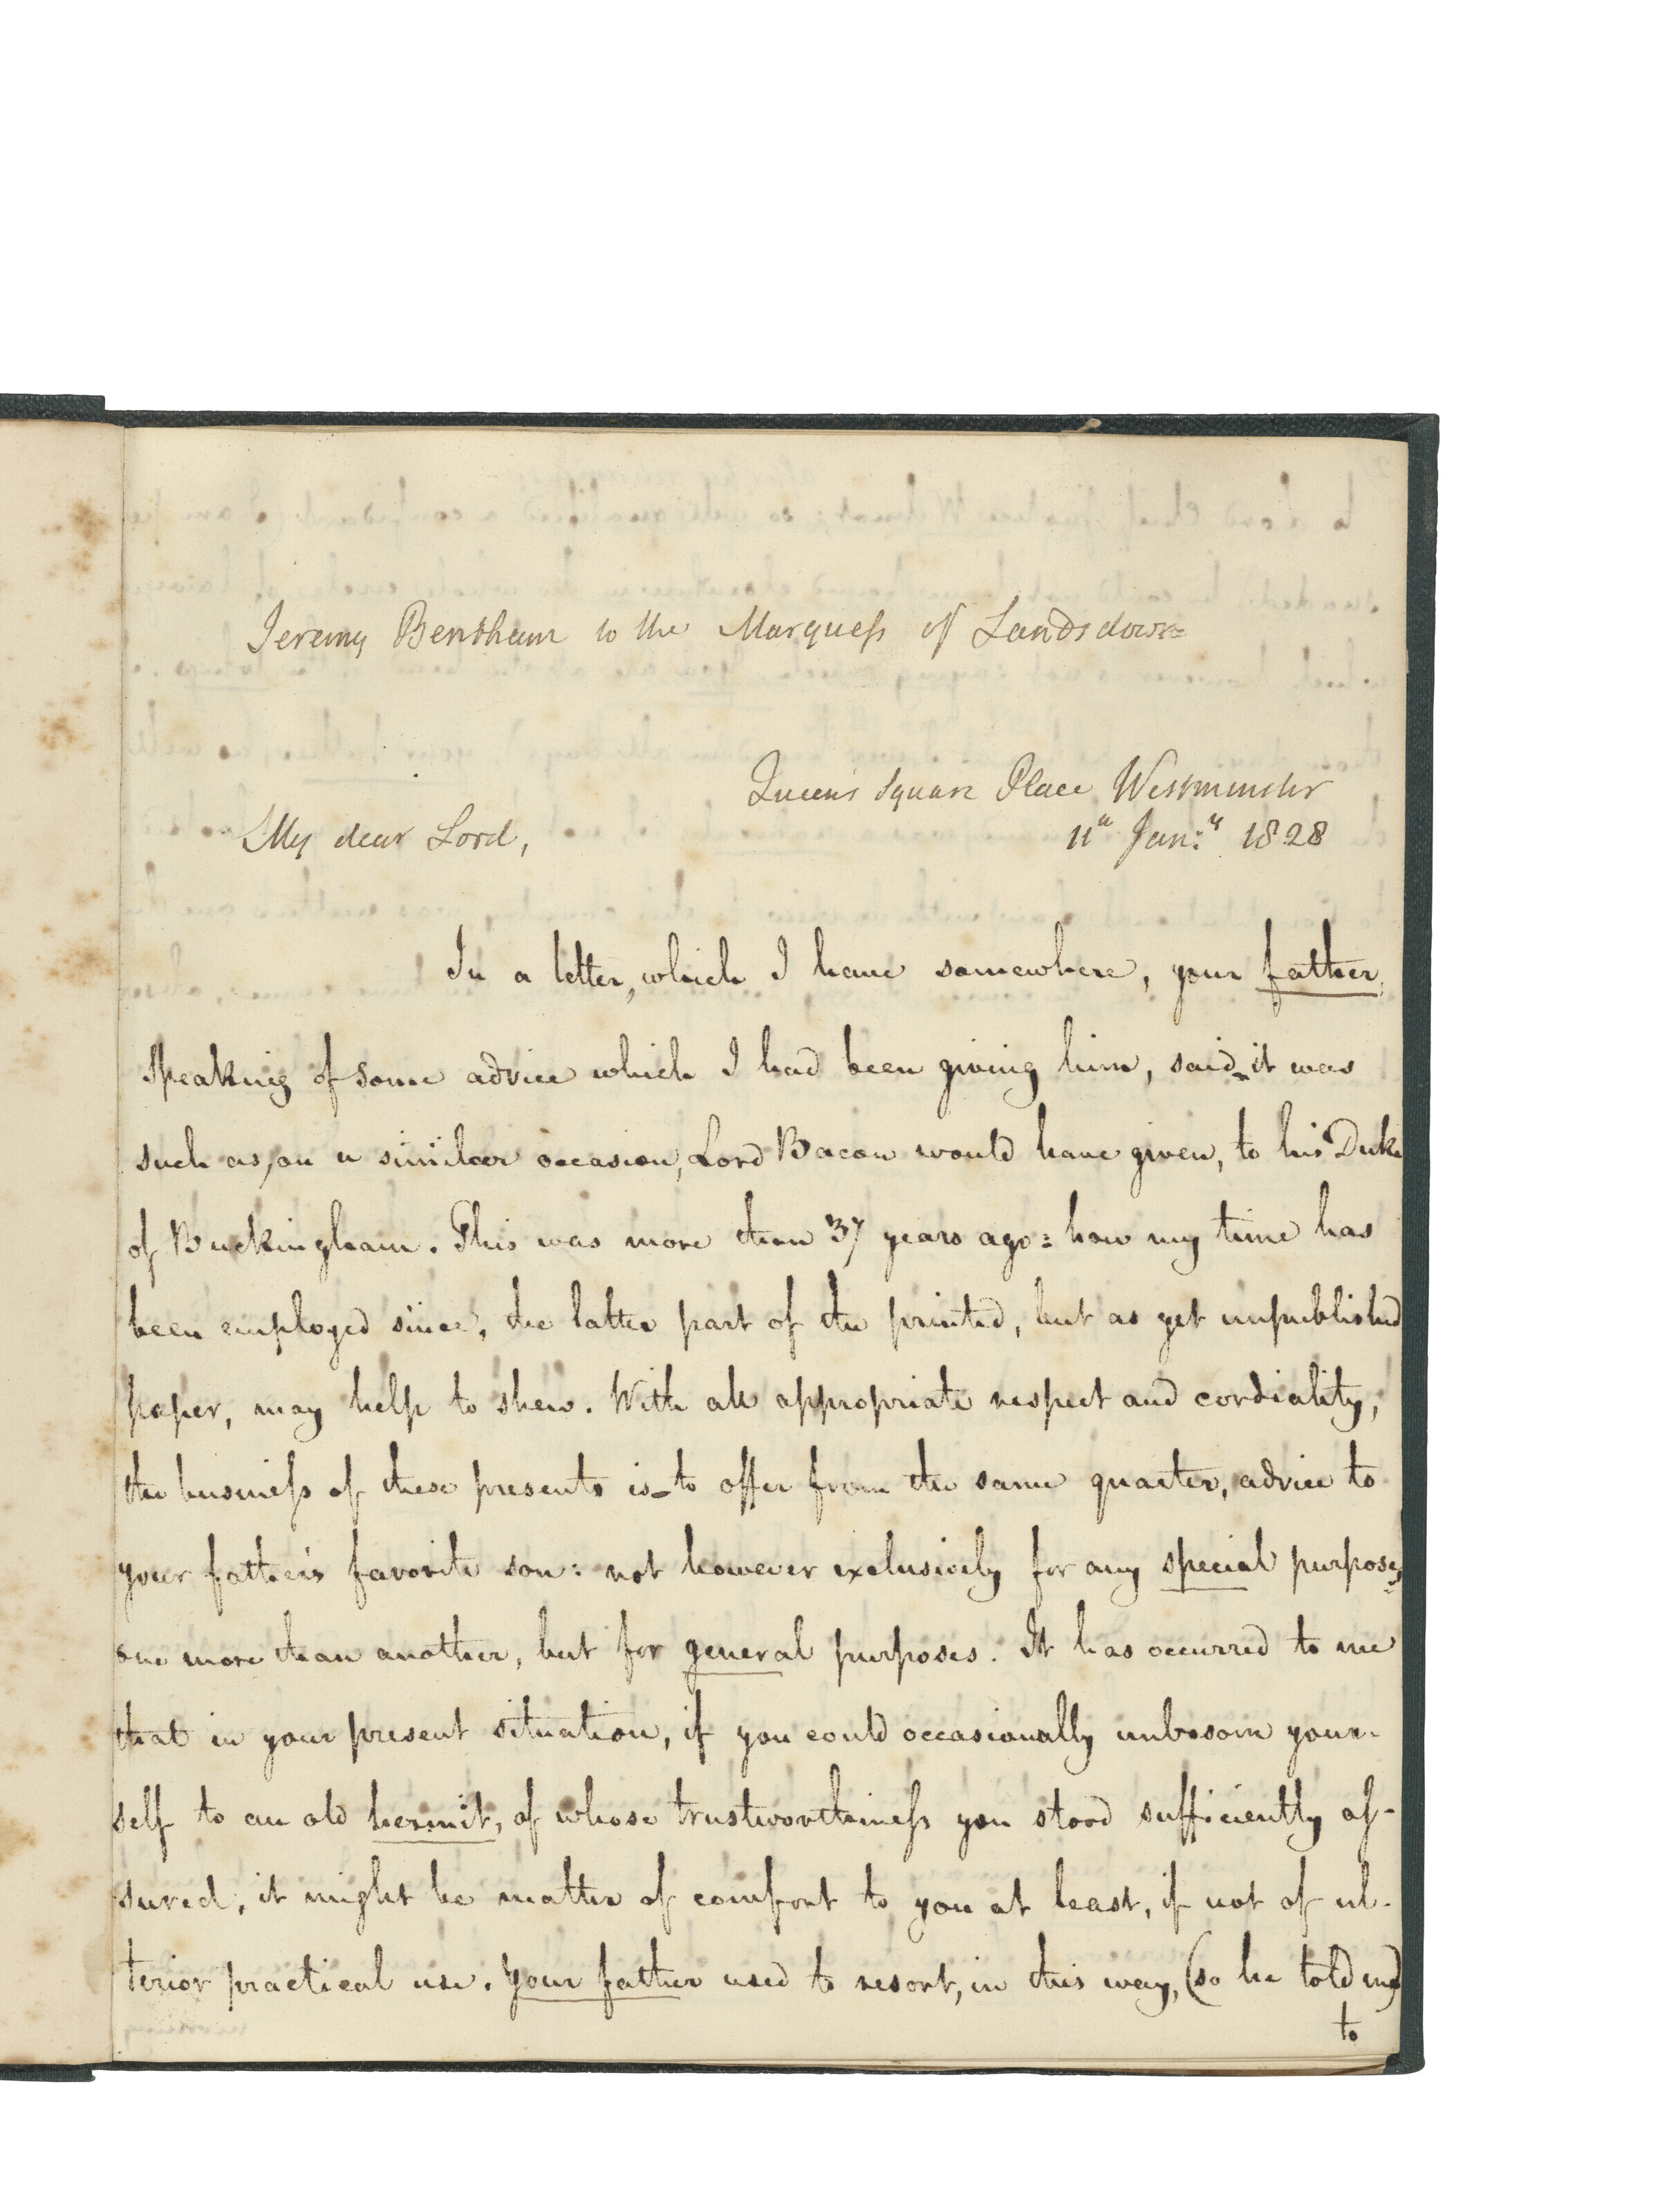 Jeremy Bentham to the Marquess of Landsdown
Queen's Square Place Westminster
My dear Lord,
11th Jan:y 1828
In a letter, which I have somewhere, your father,
speaking of some advice which I had been giving him, said it was
such as, on a similar occasion, Lord Bacon would have given, to his Duke
of Buckingham. This was more than 37 years ago: how my time has
been employed since, the latter part of the printed, but as yet unpublished
paper, may help to shew. With all appropriate respect and cordiality,
the business of these presents is - to offer from the same quarter, advice to
your father's favorite son: not however exclusively for any special purpose,
one more than another, but for general purposes. It has occurred to me
that in your present situation, if you could occasionally unbosom your-
self to an old hermit, of whose trustworthiness you stood sufficiently as-
sured, it might be matter of comfort to you at least, if not of ul-
terior practical use. Your father used to resort, in this way, (so he told me)
to